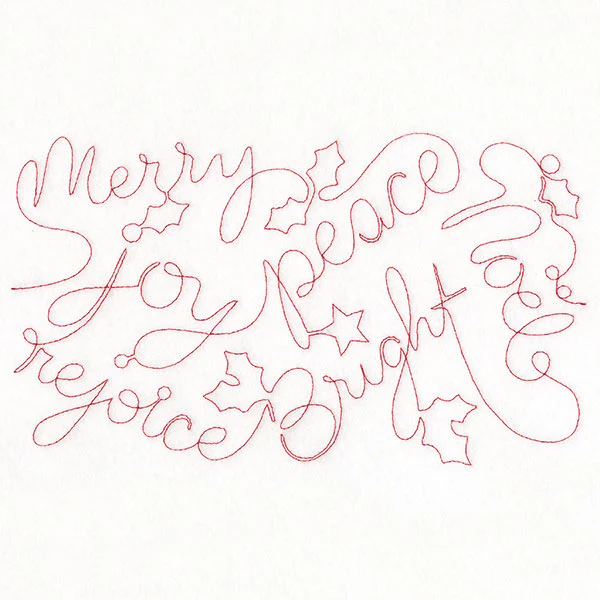 Merry
peace
Joy
Bright
rejoice
Noel